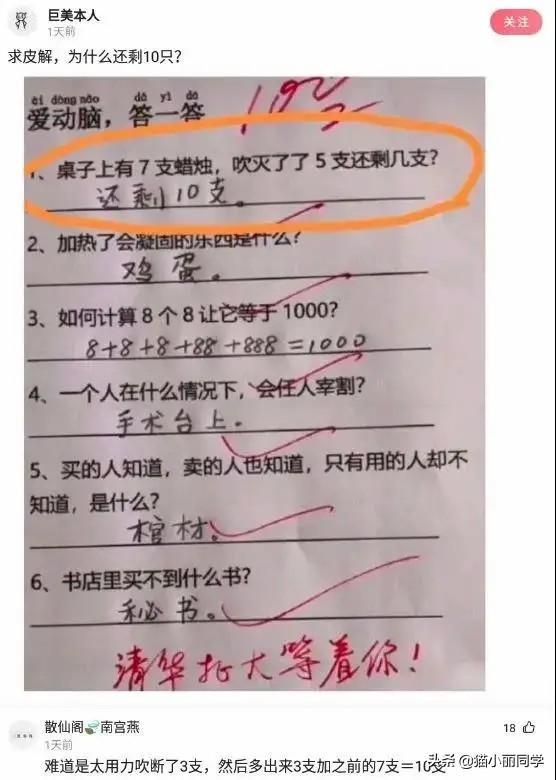 巨美本人
1天前
关注
求皮解，为什么还剩10只？
ài dòng nǎo dá yì dá
爱动脑，答一答
1、桌子上有7支蜡烛，吹灭了了5支还剩几支？
还剩10支。
2、加热了会凝固的东西是什么？
鸡蛋。
3、如何计算8个8让它等于1000？
8+8+8+88+888=1000
4、一个人在什么情况下，会任人宰割？
手术台上。
5、买的人知道，卖的人也知道，只有用的人却不
知道，是什么？
棺材。
6、书店里买不到什么书？
秘书。
清华北大等着你！
散仙阁🍃南宫燕
1天前
18
难道是太用力吹断了3支，然后多出来3支加之前的7支＝10支
头条 @猫小丽同学